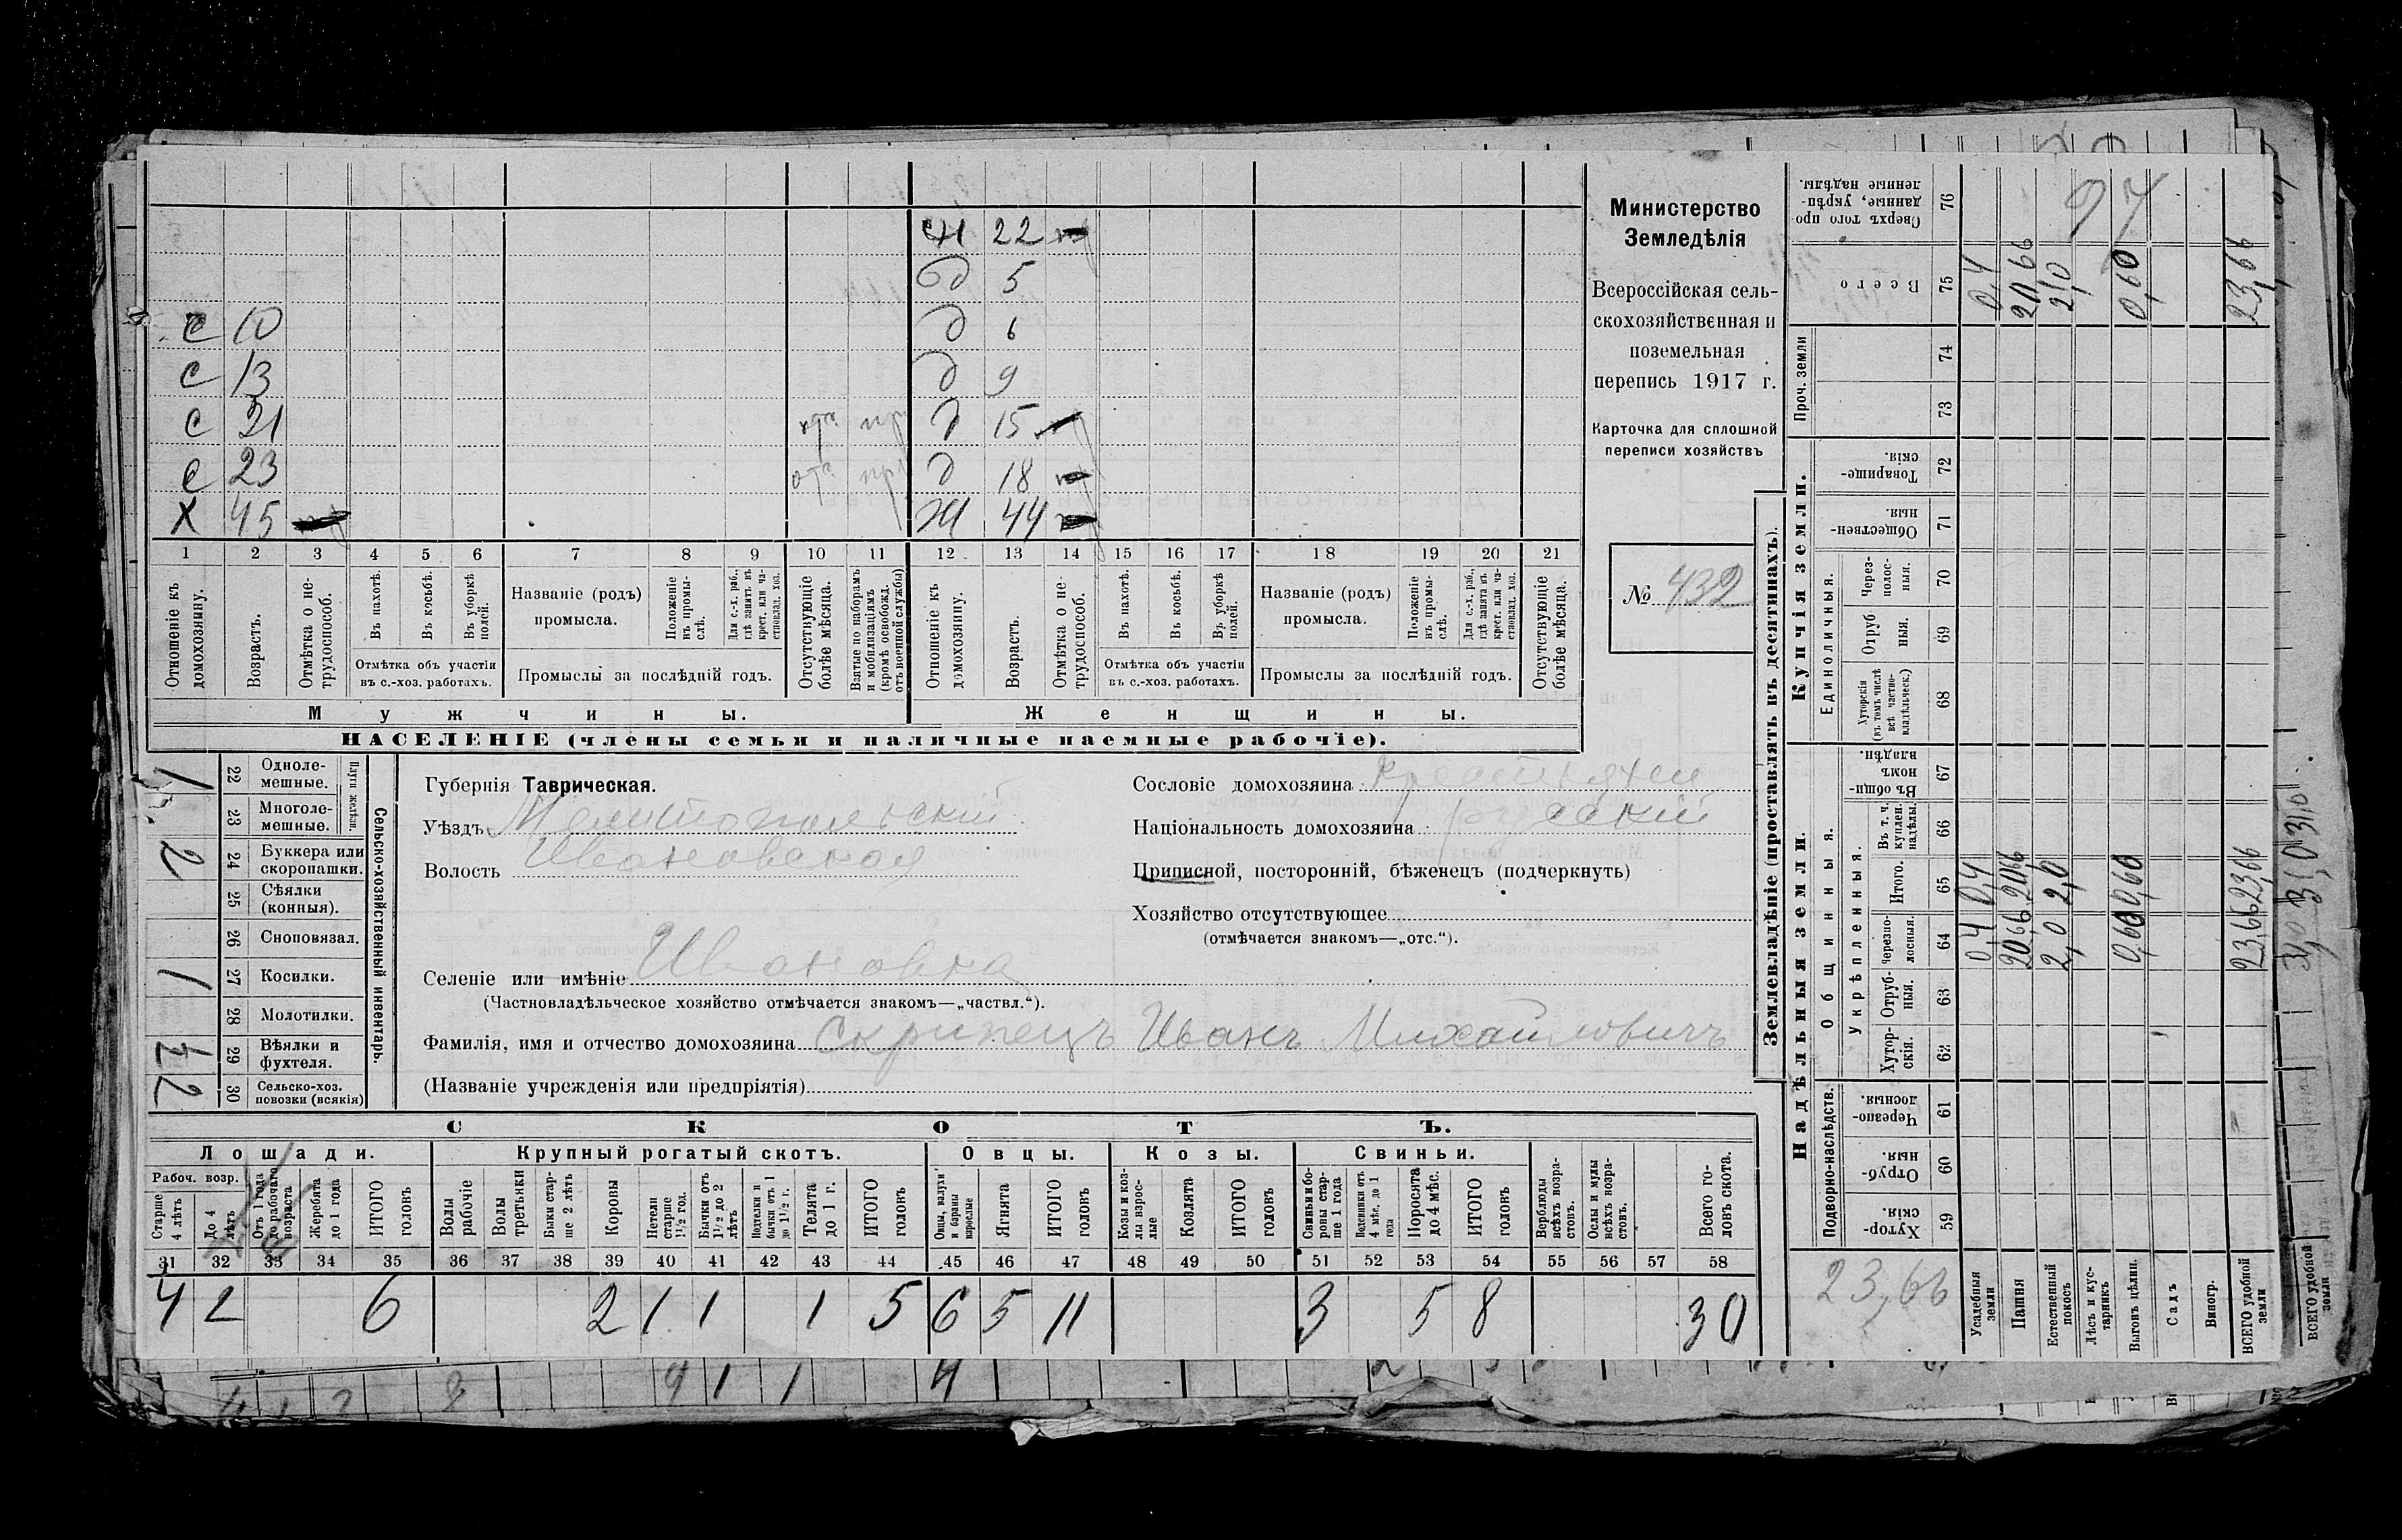 с ж 22
д 5
с 10 д 6
с 13 д 9
с 21 пр д 15
с 23 отс пр д 18
х 45 ж 44
1 2 3 4 5 6 7 8 9 10 11 12 13 14 15 16 17 18 19 20 21
Отношеніе къ домохозяину.
Возрастъ.
Отмѣтка о не-трудоспособ.
Въ пахотѣ.
Въ косьбѣ.
Въ уборкѣ полей.
Отмѣтка объ участіи
въ с.-хоз. работахъ.
Названіе (родъ)
промысла.
Положеніе въ промы-слѣ.
Для с.-х. раб., гдѣ занятъ въ крест. или ча-стновлад. хоз.
Промыслы за послѣдній годъ.
Отсутствующіе болѣе мѣсяца.
Взятые по наборамъ и мобилизаціямъ (кромѣ освобожд. отъ военной службы)
Отношеніе къ домохозяину.
Возрастъ.
Отмѣтка о не-трудоспособ.
Въ пахотѣ.
Въ косьбѣ.
Въ уборкѣ полей.
Отмѣтка объ участіи
въ с.-хоз. работахъ.
Названіе (родъ)
промысла.
Положеніе въ промы-слѣ.
Для с.-х. раб., гдѣ занята въ крест. или ча-стновлад. хоз.
Промыслы за послѣдній годъ.
Отсутствующіе болѣе мѣсяца.
Мужчины.
Женщины.
НАСЕЛЕНІЕ (члены семьи и наличные наемные рабочіе).
Министерство
Земледѣлія
Всероссійская сель-
скохозяйственная и
поземельная
перепись 1917 г.
Карточка для сплошной
переписи хозяйствъ
№ 432
Сельско-хозяйственный инвентарь.
Плуги желѣзн.
22 Одноле-мешные. 1
23 Многоле-мешные.
24 Буккера или скоропашки. 2
25 Сѣялки (конныя).
26 Сноповязал.
27 Косилки. 1
28 Молотилки.
29 Вѣялки и фухтеля.
30 Сельско-хоз. повозки (всякія) 2
Губернія Таврическая.
Уѣздъ Мелитопольскій
Волость Ивановская
Сословіе домохозяина крестьянин
Національность домохозяина русскій
Приписной, посторонній, бѣженецъ (подчеркнуть)
Хозяйство отсутствующее
(отмѣчается знакомъ—„отс.“).
Селеніе или имѣніе Ивановка
(Частновладѣльческое хозяйство отмѣчается знакомъ—„частвл.“).
Фамилія, имя и отчество домохозяина Скрипецъ Иванъ Михайловичъ
(Названіе учрежденія или предпріятія)
СКОТЪ.
Лошади. Крупный рогатый скотъ. Овцы. Козы. Свиньи.
Рабоч. возр.
Старше 4 лѣтъ
До 4 лѣтъ
Отъ 1 года до рабочаго возраста
Жеребята до 1 года
ИТОГО головъ
Волы рабочіе
Волы третьяки
Быки стар-ше 2 лѣтъ
Коровы
Нетели старше 1½ год.
Бычки отъ 1½ до 2 лѣтъ
Подтелки и бычки отъ 1 до 1½ г.
Телята до 1 г.
ИТОГО головъ
Овцы, валухи и бараны взрослые
Ягнята
ИТОГО головъ
Козы и коз-лы взрос-лые
Козлята
ИТОГО головъ
Свиньи и бо-ровы стар-ше 1 года
Подсвинки отъ 4 мѣс. до 1 года
Поросята до 4 мѣс.
ИТОГО головъ
Верблюды всѣхъ возра-стовъ.
Ослы и мулы всѣхъ возра-стовъ.
Всего го-ловъ скота.
31 32 33 34 35 36 37 38 39 40 41 42 43 44 45 46 47 48 49 50 51 52 53 54 55 56 57 58
4 2 6 2 1 1 1 5 6 5 11 3 5 8 30
Землевладѣніе (проставлять въ десятинахъ).
Надѣльныя земли.
Купчія земли.
Проч. земли
Подворно-наслѣдств.
Общинныя.
Укрѣпленныя.
Единоличныя.
Хутор-скія. 59
Отруб-ныя. 60
Черезпо-лосныя. 61
Хутор-скія. 62
Отруб-ныя. 63
Черезпо-лосныя. 64
Итого. 65
Въ т. ч. куплен. надѣлы. 66
Въ общи-номъ владѣн. 67
Хуторскія (въ томъ числѣ всѣ частно-владѣльческ.) 68
Отруб ныя. 69
Через-полос-ныя. 70
Обществен-ныя. 71
Товарище-скія. 72
73
74
Всего 75
Сверхъ того про-данные, укрѣп-ленные надѣлы. 76
23,66
Усадебныя земли 0,4 0,4 0,4
Пашня 20,66 20,66 20,66
Естественный покосъ 2,0 2,0 2,0
Лѣсъ и кус-тарникъ
Выгонъ цѣлин. 0,60 0,60 0,60
Садъ
Виногр.
ВСЕГО удобной земли 23,66 23,66 23,66
97
ВСЕГО удобной земли